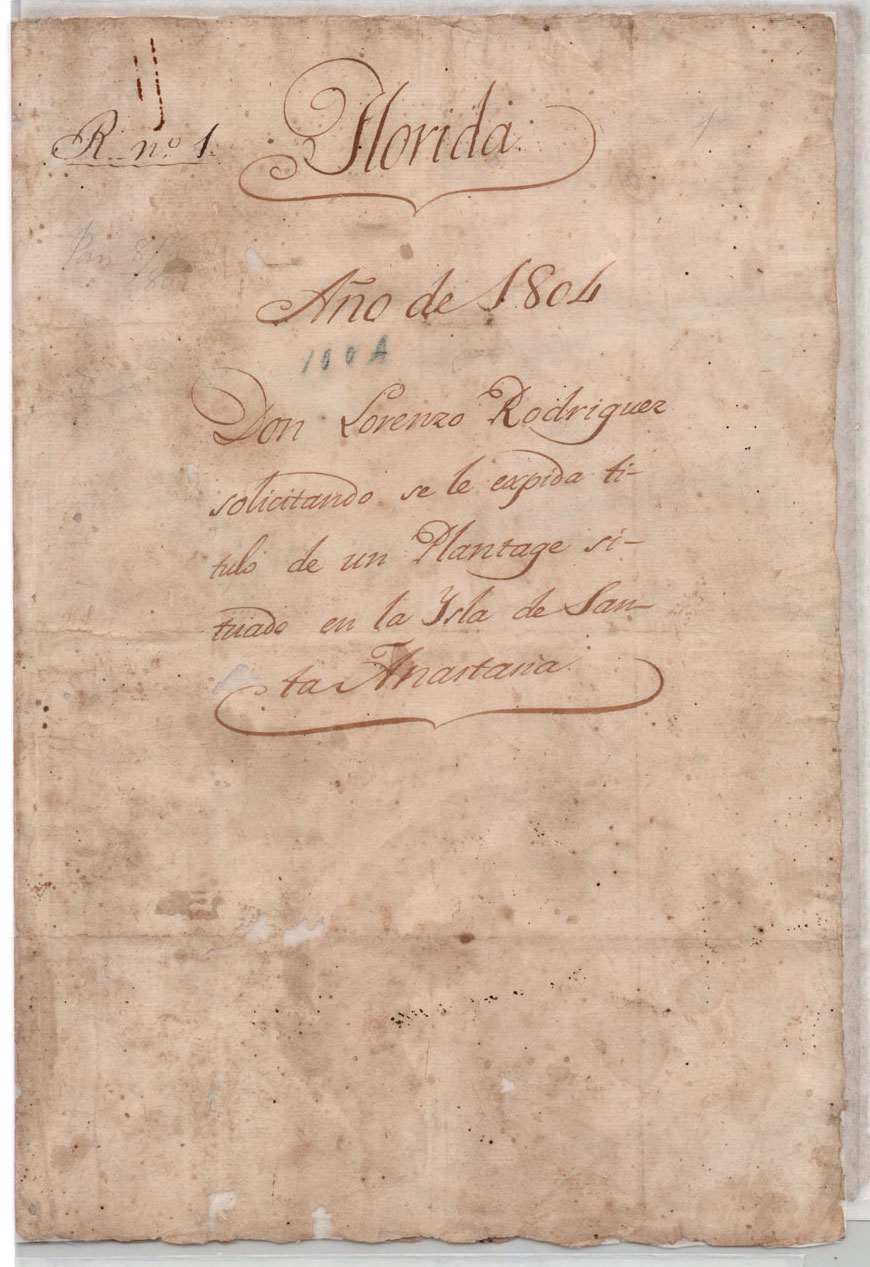 R. nº 1.
Florida.
Año de 1804
100 A
Don Lorenzo Rodriguez
solicitando se le expida ti-
tulo de un Plantage si-
tuado en la Ysla de San-
ta Anastasia.